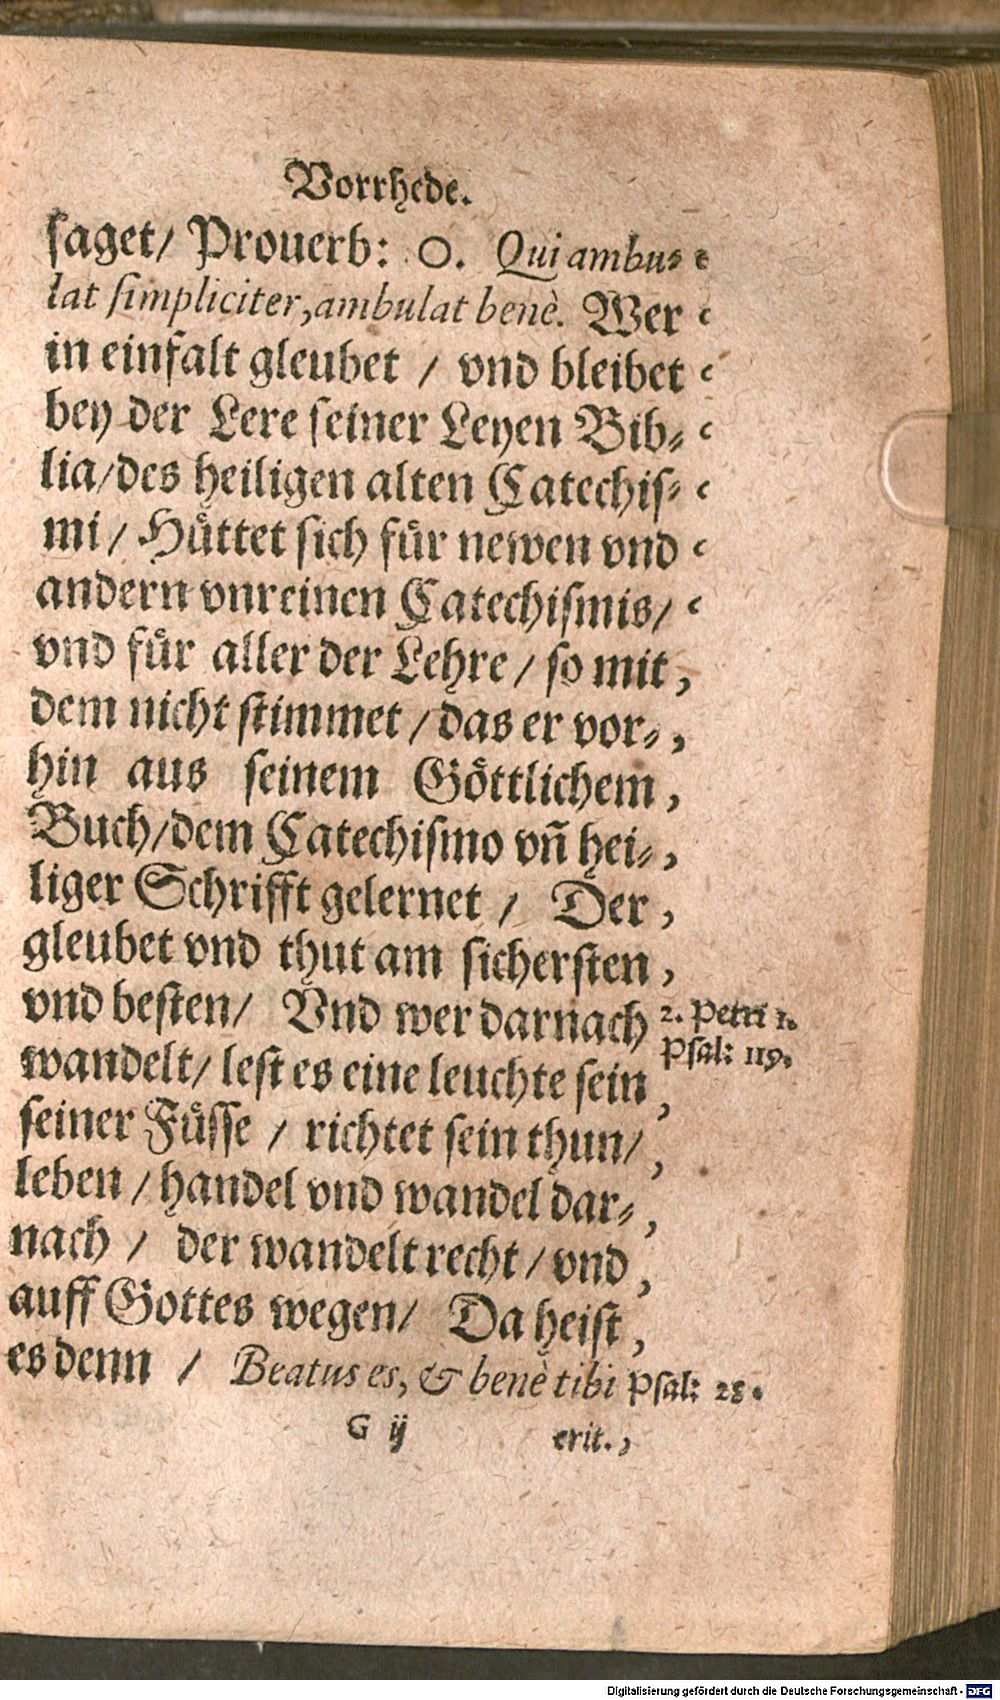 Vorrhede.
saget/ Prouerb: O. Qui ambu⸗
lat simpliciter, ambulat benè. Wer
in einfalt gleubet / vnd bleibet
bey der Lere seiner Leyen Bib⸗
lia/des heiligen alten Catechis⸗
mi / Hüttet sich für newen vnd
andern vnreinen Catechismis/
vnd für aller der Lehre / so mit
dem nicht stimmet / das er vor⸗
hin aus seinem Göttlichem
Buch/dem Catechismo vn̄ hei⸗
liger Schrifft gelernet / Der
gleubet vnd thut am sichersten
vnd besten/ Vnd wer darnach
2. Petri 1.
Psal: 119.
wandelt/ lest es eine leuchte sein
seiner Füsse / richtet sein thun/
leben / handel vnd wandel dar⸗
nach / der wandelt recht / vnd
auff Gottes wegen/ Da heist
es denn / Beatus es, & benè tibi
Psal: 28.
G ij erit.,
Digitalisierung gefördert durch die Deutsche Forschungsgemeinschaft - DFG